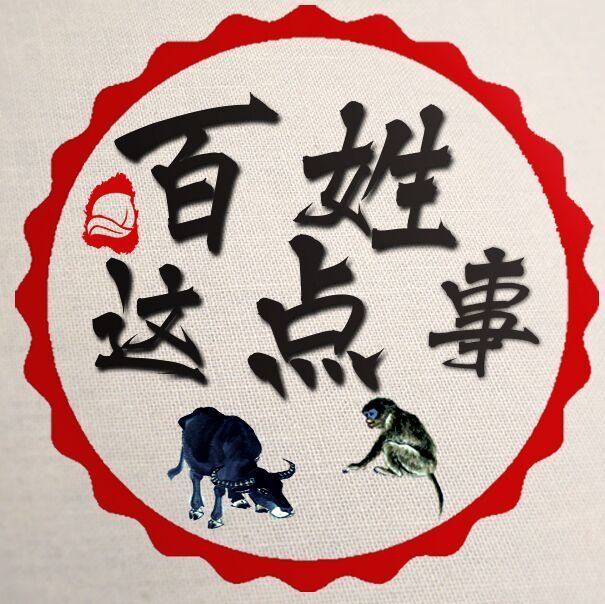 百姓
这点事